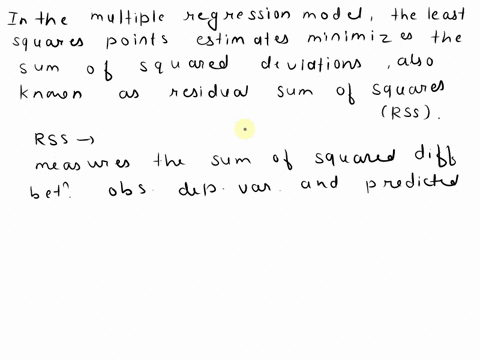 In the multiple regression model, the least
squares points estimates minimizes the
sum of squared deviations, also
known as residual sum of squares
(RSS).
RSS →
measures the sum of squared diff
betⁿ. obs. dep. var. and predicted